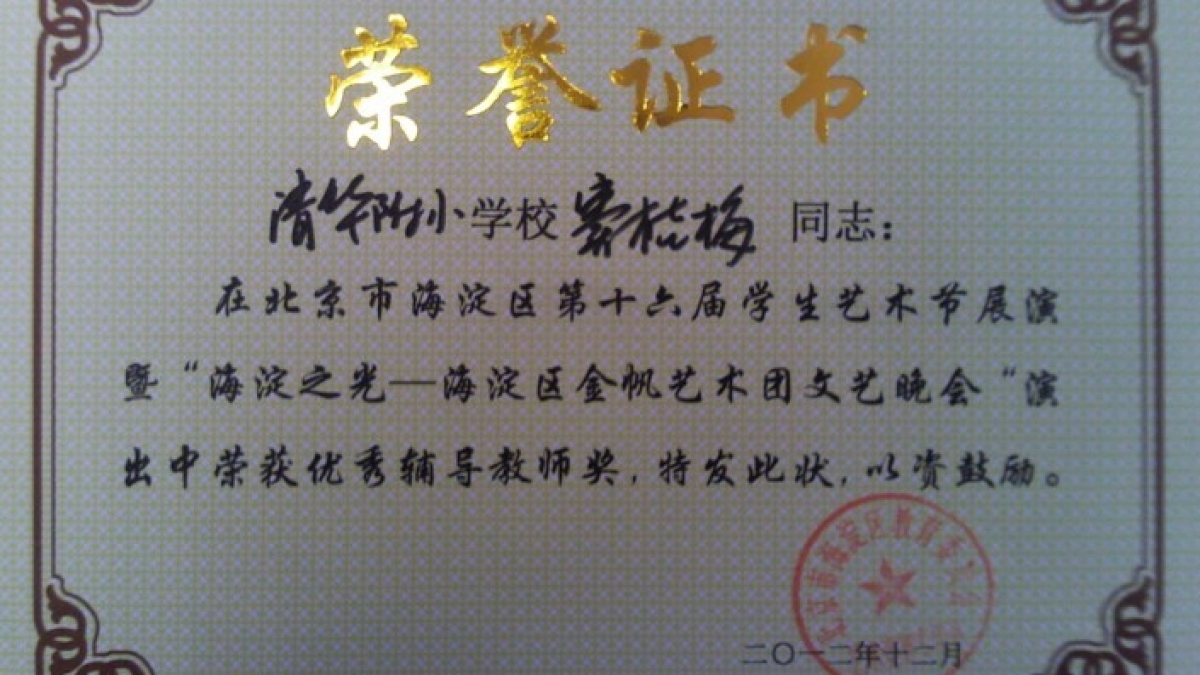 荣誉证书
清华附小学校窦桂梅 同志：
在北京市海淀区第十六届学生艺术节展演
暨“海淀之光—海淀区金帆艺术团文艺晚会“演
出中荣获优秀辅导教师奖，特发此状，以资鼓励。
北京市海淀区教育委员会
二〇一二年十二月